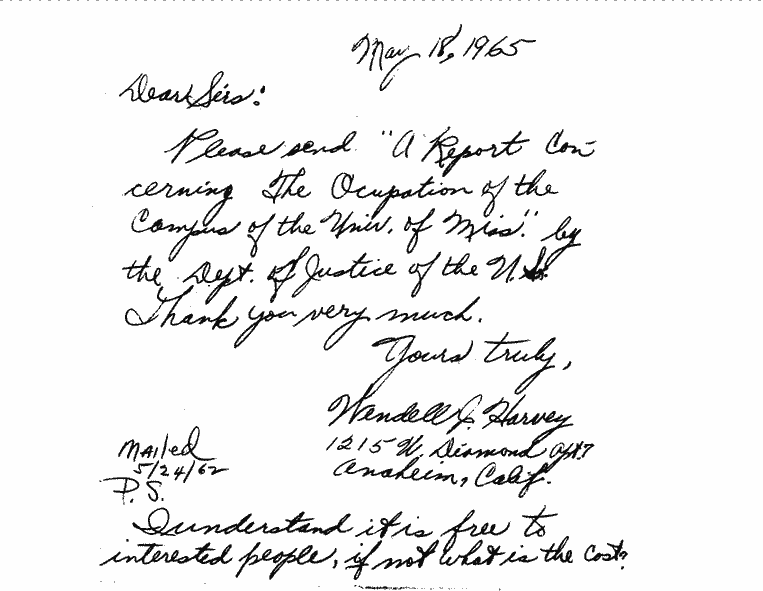 May 18, 1965
Dear Sirs:
Please send "A Report Con-
cerning The Ocupation of the
Campus of the Univ. of Miss." by
the Dept. of Justice of the U.S.
Thank you very much.
Yours truly,
Wendell J. Harvey
1215 W. Diamond apt. 7
Anaheim, Calif.
Mailed
5/24/62
P.S.
I understand it is free to
interested people, if not what is the cost?